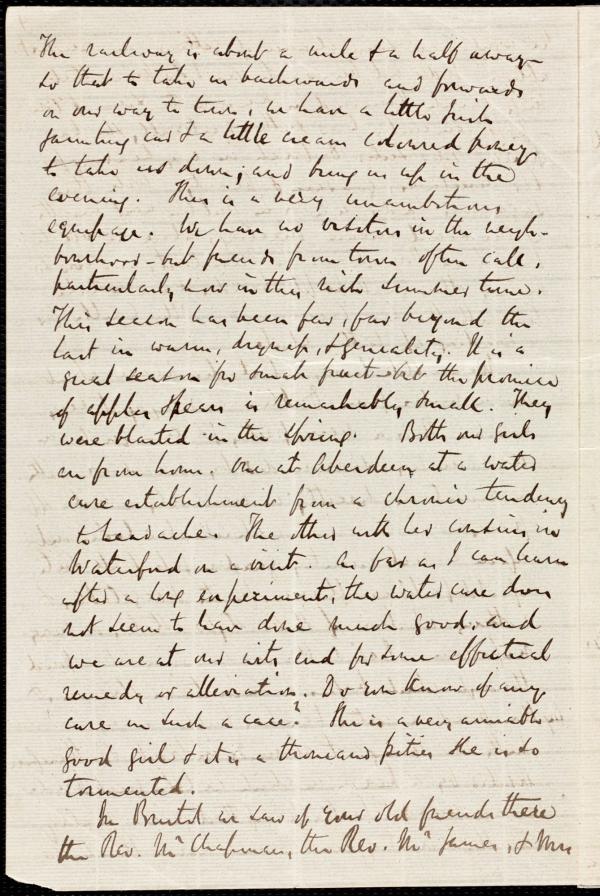 The railway is about a mile & a half away -
so that to take us backwards and forwards
on our way to town, we have a little Irish
jaunting car & a little cream coloured poney
to take us down, and bring us up in the
evening. This is a very unambitious
equipage. We have no visitors in the neigh-
bourhood - but friends from town often call,
particularly now in this rich summer time.
This season has been far, far beyond the
last in warm, dryness, & geniality. It is a
great season for small fruit - but the promise
of apples & pears is remarkably small. They
were blasted in the Spring. Both our girls
are from home. One at Aberdeen, at a water
cure establishment from a chronic tendency
to headache. The other with her cousins in
Waterford on a visit. As far as I can learn
after a long experiment, the water cure does
not seem to have done much good, and
we are at our wits end for some effectual
remedy or alleviation. Do you know of any
cure in such a case? She is a very amiable
good girl & it is a thousand pities she is so
tormented.
In Bristol we saw of your old friends there
the Rev. Mr Chapman, the Rev. Mr James, & Mrs